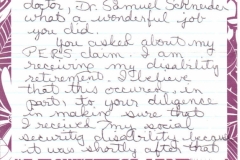 doctor, Dr. Samuel Schneider
what a wonderful job
you did.
You asked about my
PERS claim. I am
receiving my disability
retirement. I believe
that this occured, in
part, to your diligence
in making sure that
I received my social
security disability because
it was shortly after that